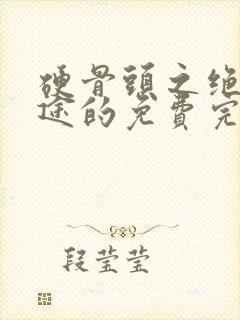 硬骨頭之绝
途的免費完
段莹莹